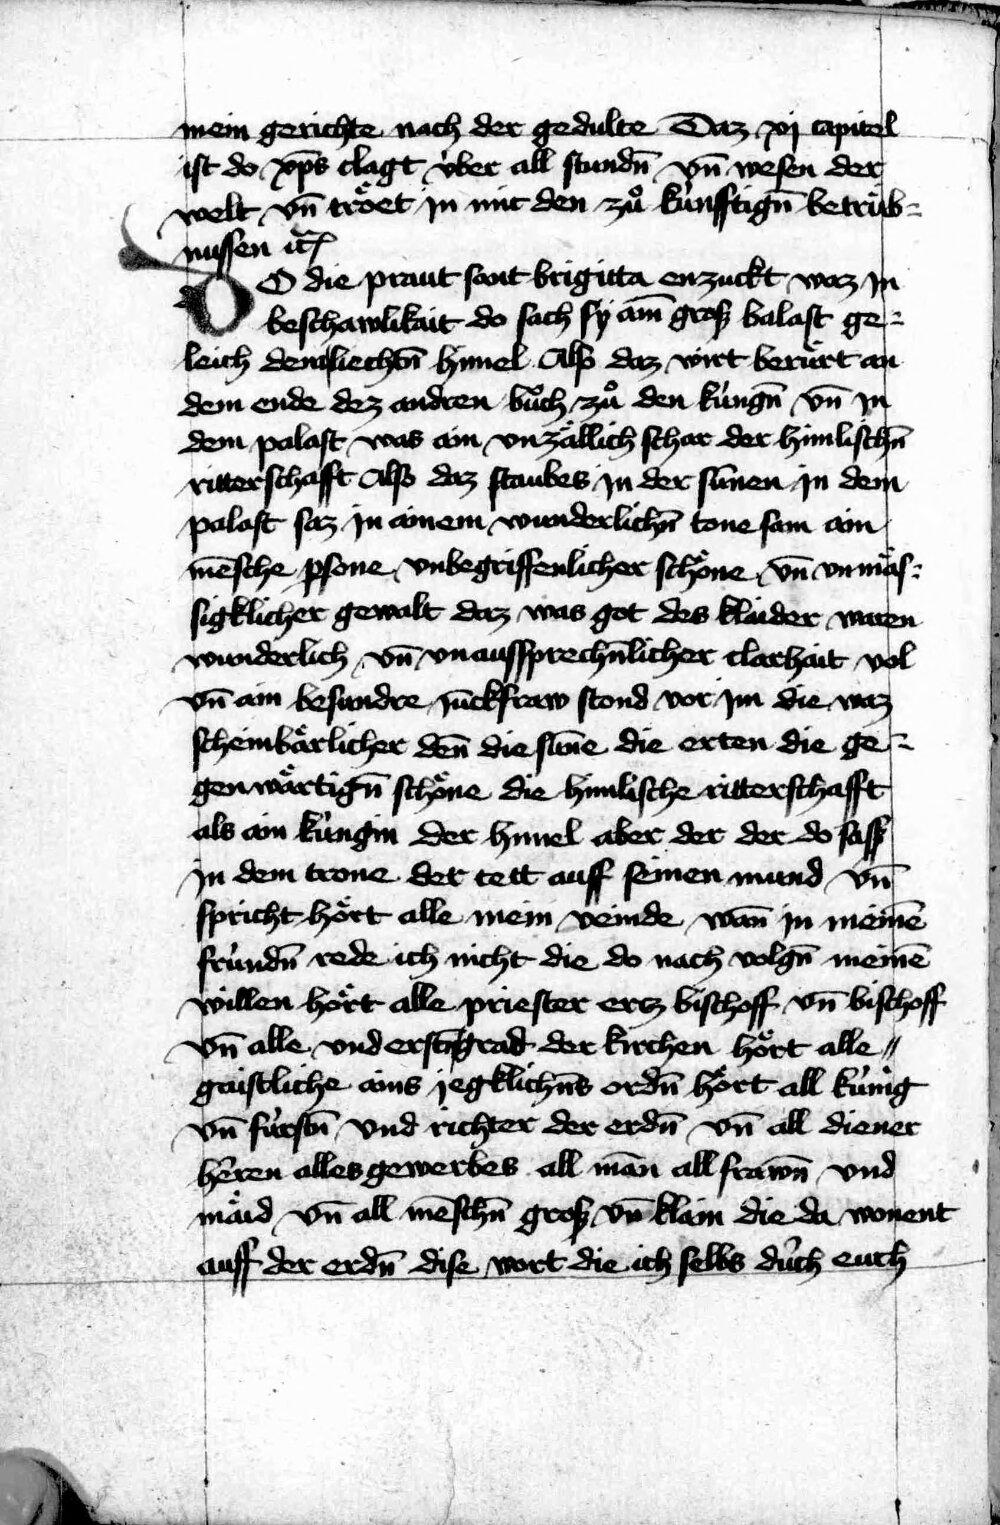 mein gerichte nach der gedulte Daz xj capitel
ist do xp̄s clagt vͤber all stundn̄ vn̄ wesen der
welt vn̄ trͤoet jn mit den zuͦ kúnfftign̄ betruͤb=
nussen ꝛc
DO die praut sant brigitta enzuckt waz jn
beschawlikait do sach sy ain̄ groß balast ge=
leich dem liechtn̄ himel Also daz wirt beruͤrt an
dem ende dez andren buͦch zuͦ den kúngn̄ vn̄ jn
dem palast was ain vnzaͤllich schar der himlischn̄
ritterschafft Also daz staubes jn der sun̄en jn dem
palast saz jn ainem wunderlichn̄ tone sam ain
men̄sche ꝑsone vnbegriffenlicher schoͤne vn̄ vnmaͤs=
sigklicher gewalt daz was got des klaider waren
wunderlich vn̄ vnaussprechn̄licher clarhait vol
vn̄ ain besundre junckfraw stond vor jm die waz
scheinbaͤrlicher den̄ die sun̄e die erten die ge=
genwaͤrtign̄ schoͤne die himlische ritterschafft
als ain kúngin der himel aber der der do sass
jn dem trone der tett auff seinen mund vn̄
spricht hoͤrt alle mein veinde wan̄ jn meinē
frúndn̄ rede ich nicht die do nach volgn̄ meinē
willen hoͤrt alle priester ertz bischoff vn̄ bischoff
vn̄ alle vnderstn̄ grad der kirchen hoͤrt alle
gaistliche ains jegklichn̄s ordn̄ hoͤrt all kúnig
vn̄ fúrstn̄ vnd richter der erdn̄ vn̄ all diener
herren alles gewerbes all man̄ all frawn̄ vnd
maͤid vn̄ all men̄schn̄ groß vn̄ klain die da wonent
auff der erdn̄ dise wort die ich selbs durch euch